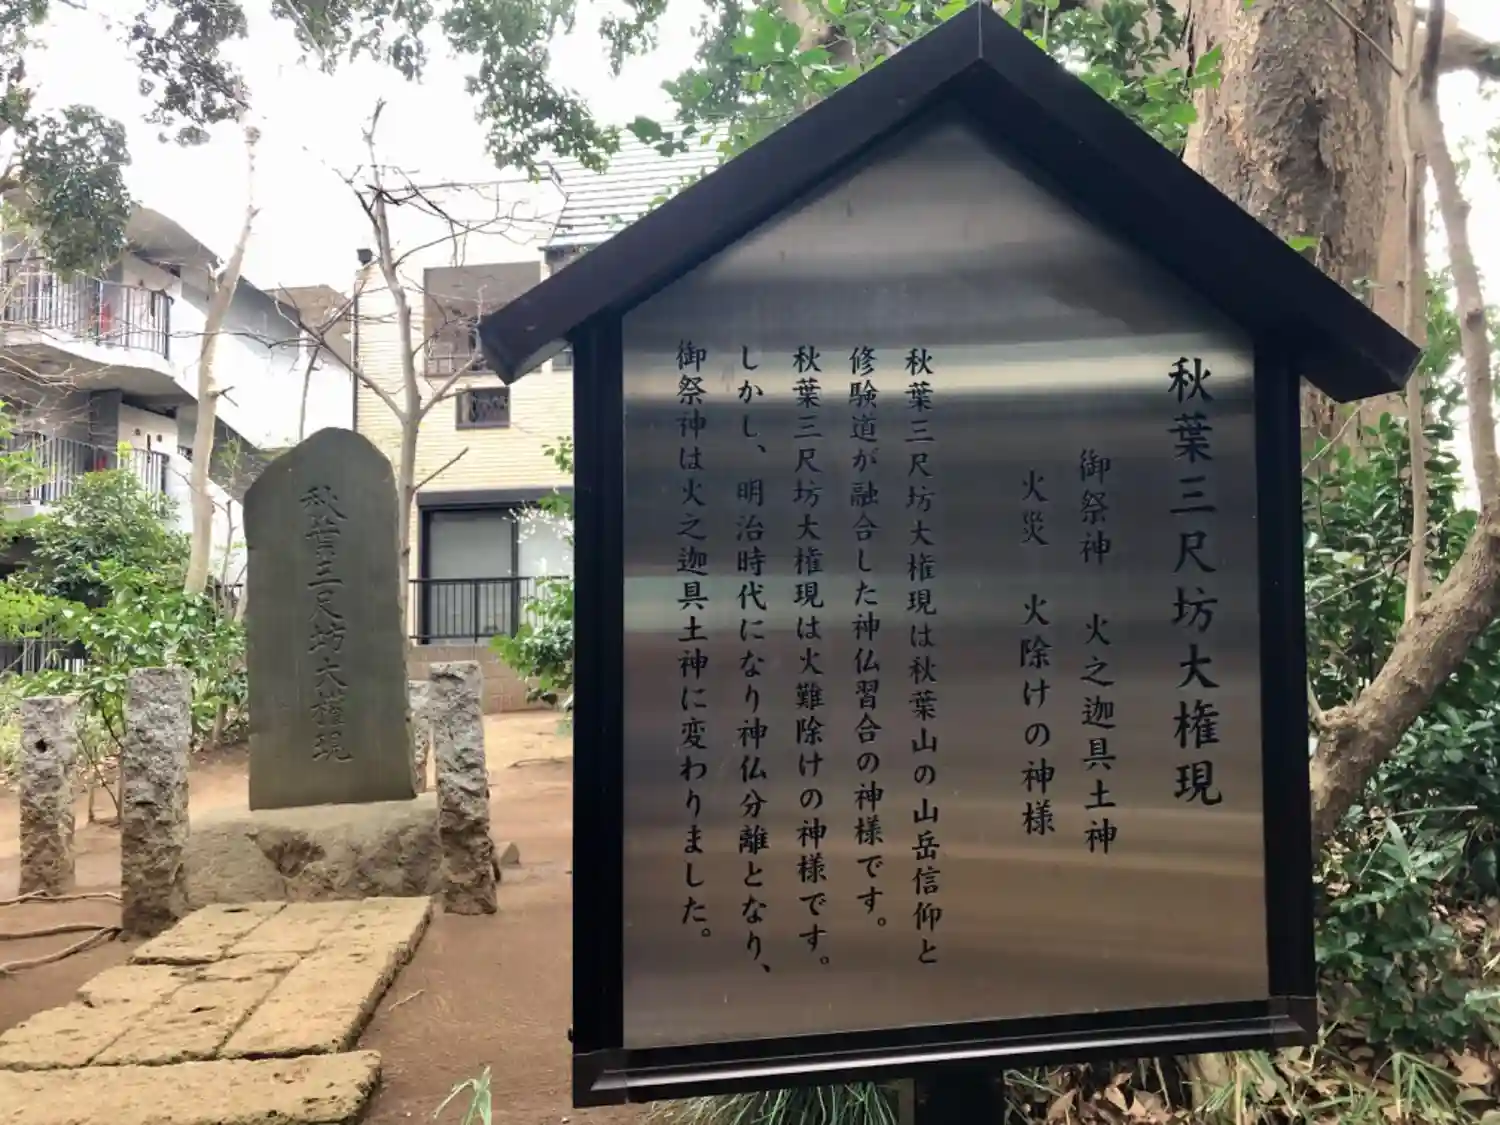 秋葉三尺坊大権現
御祭神　火之迦具土神
火災　火除けの神様
秋葉三尺坊大権現は秋葉山の山岳信仰と
修験道が融合した神仏習合の神様です。
秋葉三尺坊大権現は火難除けの神様です。
しかし、明治時代になり神仏分離となり、
御祭神は火之迦具土神に変わりました。
秋葉三尺坊大権現